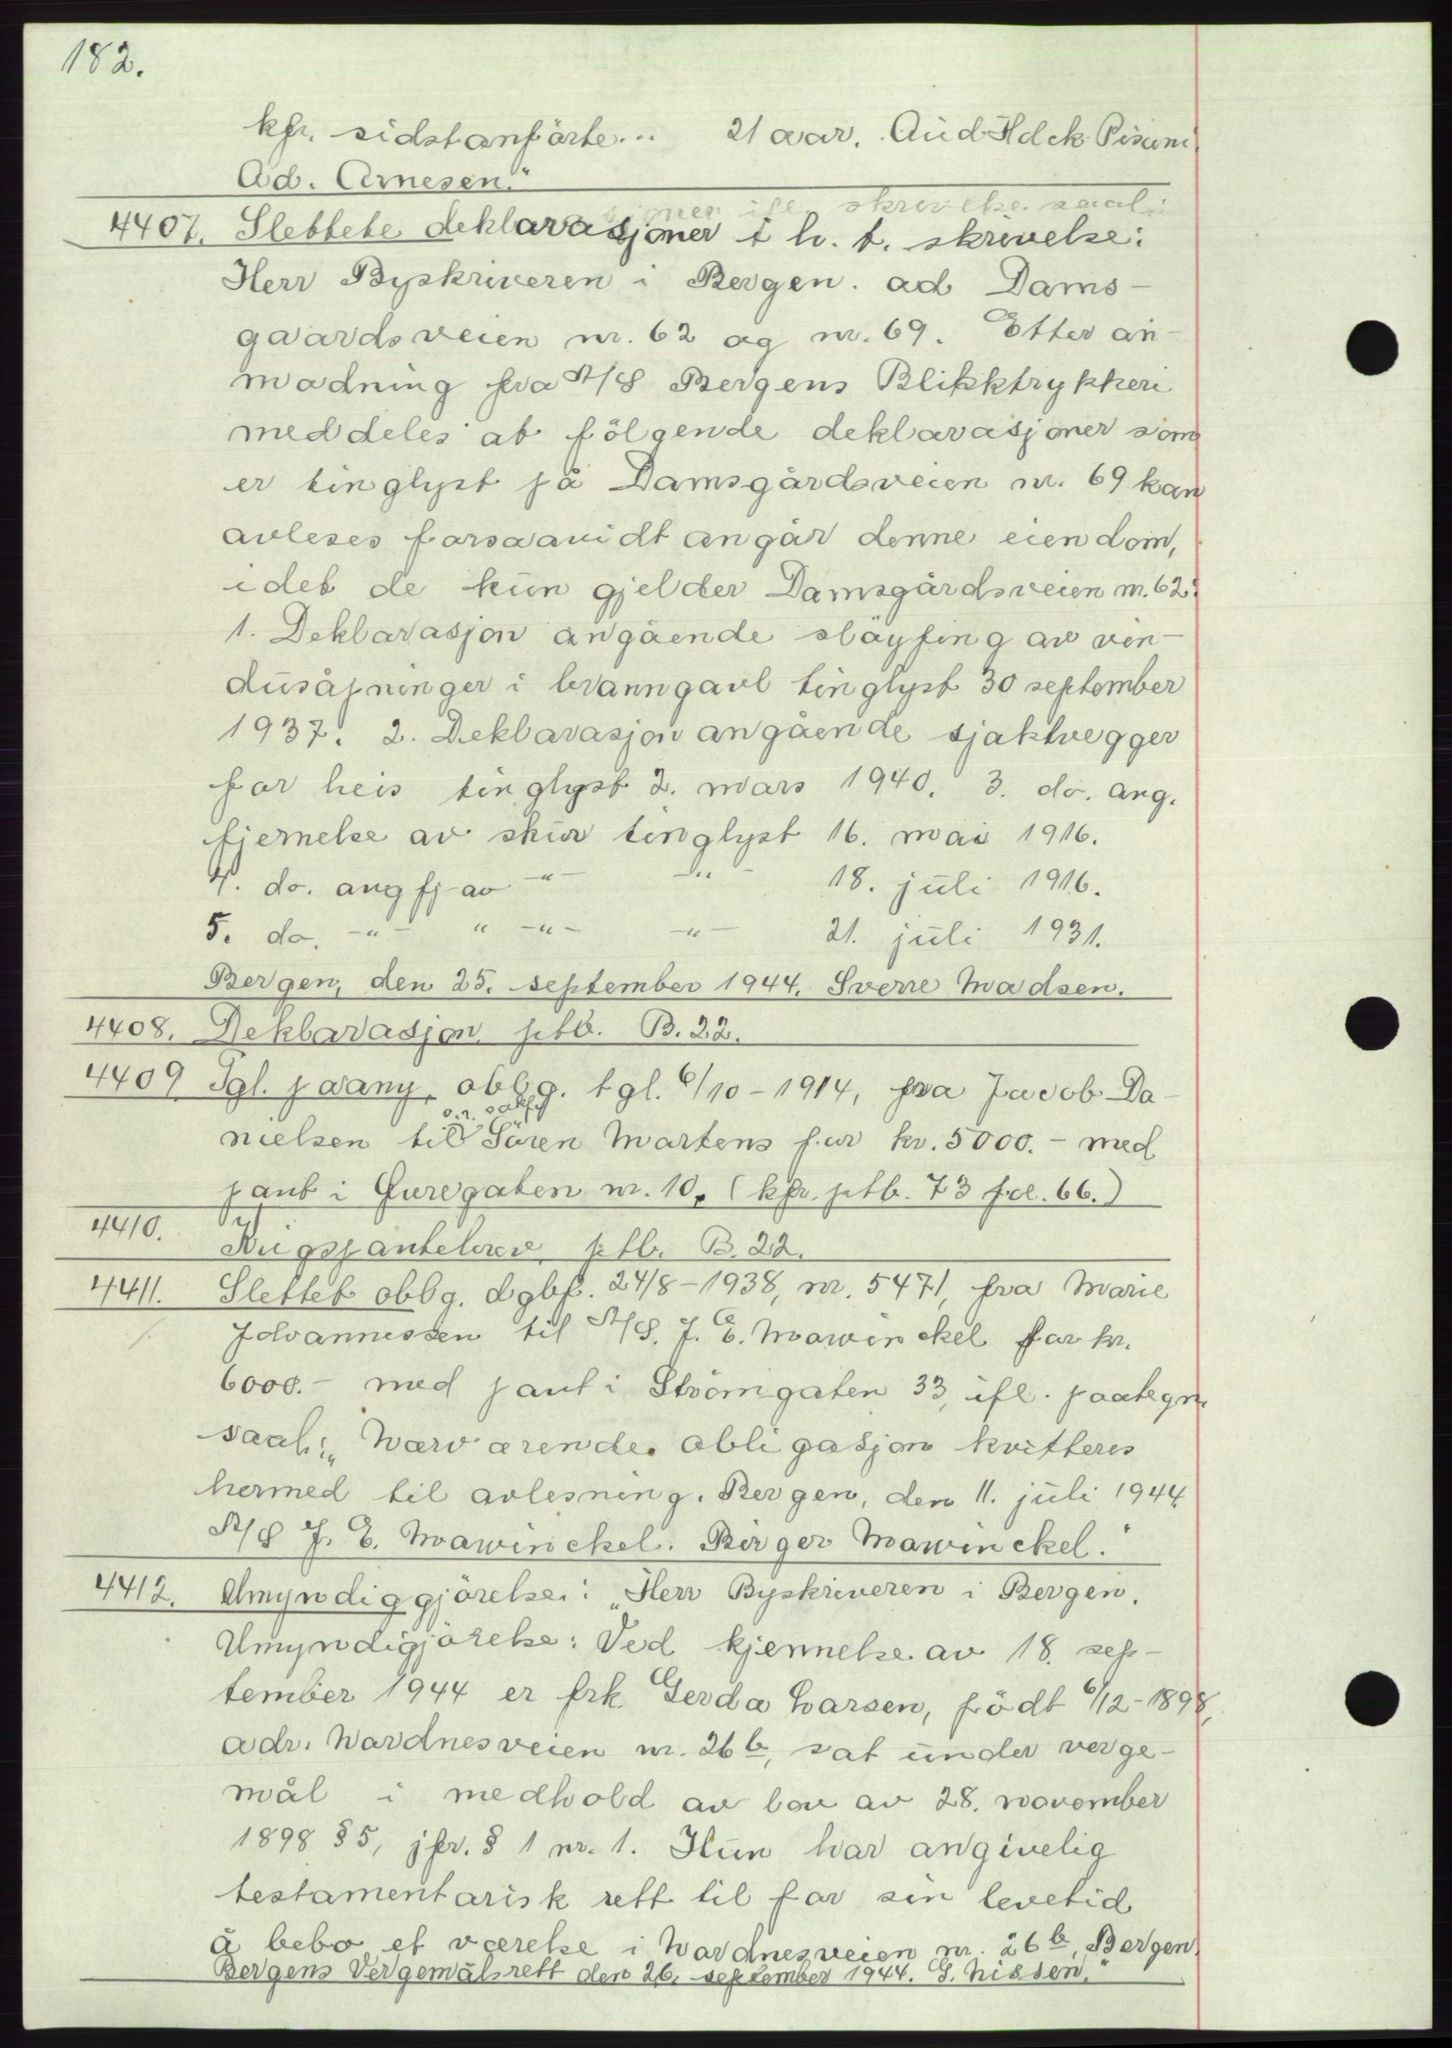 182.
kfr. sidstanförte... 21 aar. Aud Hdck Pisani
Ad. Arnesen."
4407. Slettete deklarasjoner i h. t. skrivelse:
Herr Byskriveren i Bergen. ad Dams-
gaardsveien nr. 62 og nr. 69. Etter an-
modning fra A/S Bergens Blikktrykkeri
meddeles at fölgende deklarasjoner som
er tinglyst på Damsgårdsveien nr. 69 kan
avleses forsaavidt angår denne eiendom,
idet de kun gjelder Damsgårdsveien nr. 62:
1. Deklarasjon angående slöyfing av vin-
dusåpninger i branngavl tinglyst 30 september
1937. 2. Deklarasjon angående sjaktvegger
for heis tinglyst 2. mars 1940. 3. do. ang.
fjernelse av skur tinglyst 16. mai 1916.
4. do. ang fj- av -"- -"- 18. juli 1916.
5. do. -"- " -"- -"- 21. juli 1931.
Bergen, den 25. september 1944. Sverre Madsen.
4408. Deklarasjon ptb. B. 22.
4409 Tgl. paany, oblg. tgl. 6/10-1914, fra Jacob Da-
nielsen til o.r. sakf. Sören Martens for kr. 5000.- med
pant i Øuregaten nr. 10. (kfr. ptb. 73 fol. 66.)
4410. Kugspantebrev ptb. B. 22.
4411. Slettet oblg. dgbf. 24/8-1938, nr. 5471, fra Marie
Johannessen til A/S. J. E. Mowinckel for kr.
6000.- med pant i Strömgaten 33, ifl. paategn.
saal: "Nærværende obligasjon kvitteres
hermed til avlesning. Bergen, den 11. juli 1944
A/S J. E. Mowinckel. Birger Mowinckel."
4412. Umyndiggjörelse: "Herr Byskriveren i Bergen.
Umyndigjörelse: Ved kjennelse av 18. sep-
tember 1944 er frk. Gerda Larsen, födt 6/12-1898,
adr. Nordnesveien nr. 26 b, sat under verge-
mål i medhold av lov av 28. november
1898 § 5, jfr. § 1 nr. 1. Hun har angivelig
testamentarisk rett til for sin levetid
å bebo et værelse i Nordnesveien nr. 26 b, Bergen.
Bergens Vergemålsrett den 26. september 1944. G. Nissen."